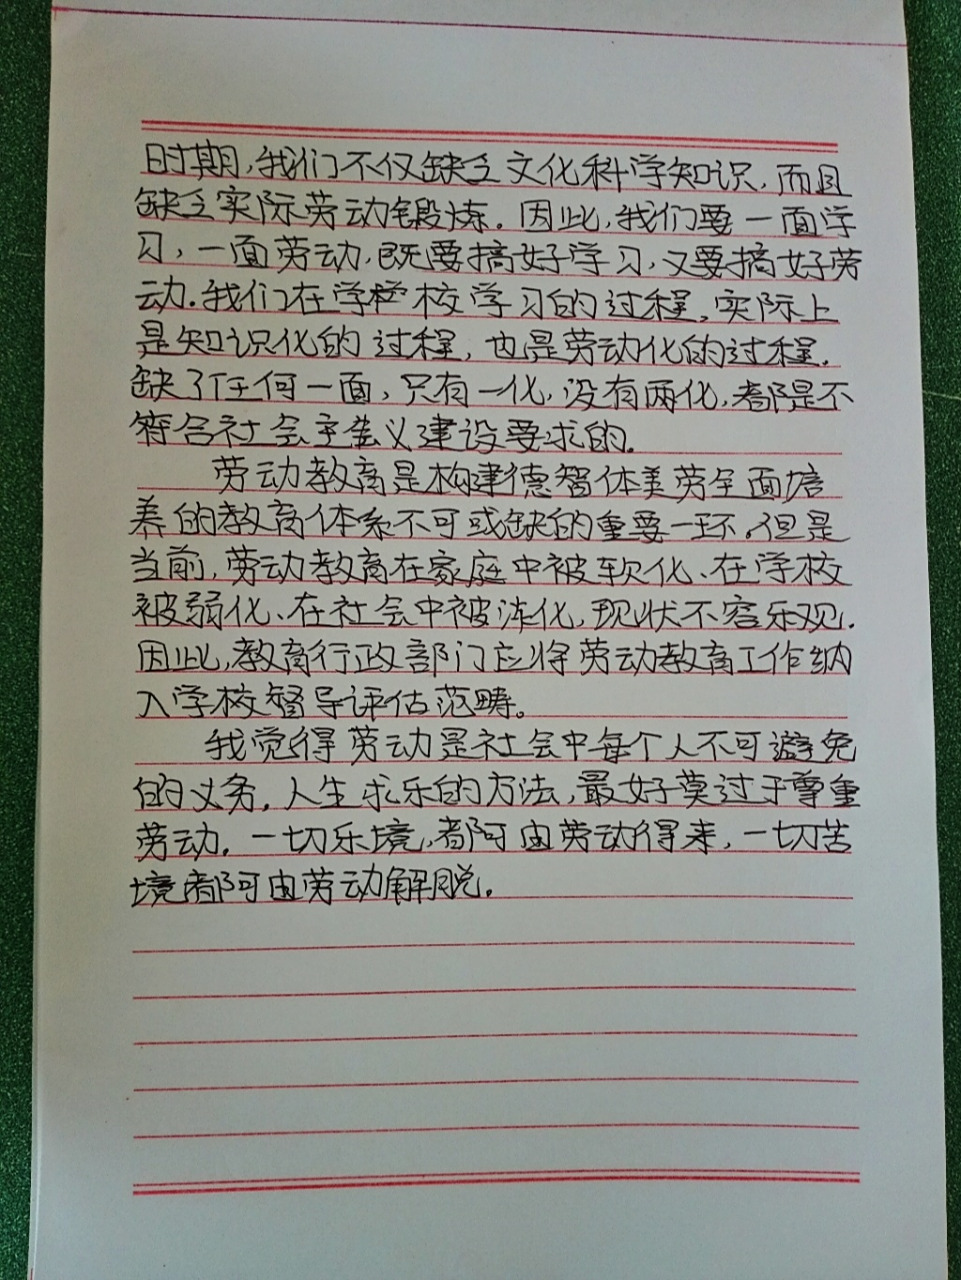 时期,我们不仅缺乏文化科学知识,而且
缺乏实际劳动锻炼。因此,我们要一面学
习,一面劳动,既要搞好学习,又要搞好劳
动.我们在学校学习的过程,实际上
是知识化的过程,也是劳动化的过程.
缺了任何一面,只有一化,没有两化,都是不
符合社会主义建设要求的.
劳动教育是构建德智体美劳全面培
养的教育体系不可或缺的重要一环。但是
当前,劳动教育在家庭中被软化、在学校
被弱化、在社会中被淡化,现状不容乐观.
因此,教育行政部门应将劳动教育工作纳
入学校督导评估范畴。
我觉得劳动是社会中每个人不可避免
的义务.人生求乐的方法,最好莫过于尊重
劳动.一切乐境,都可由劳动得来,一切苦
境都可由劳动解脱.